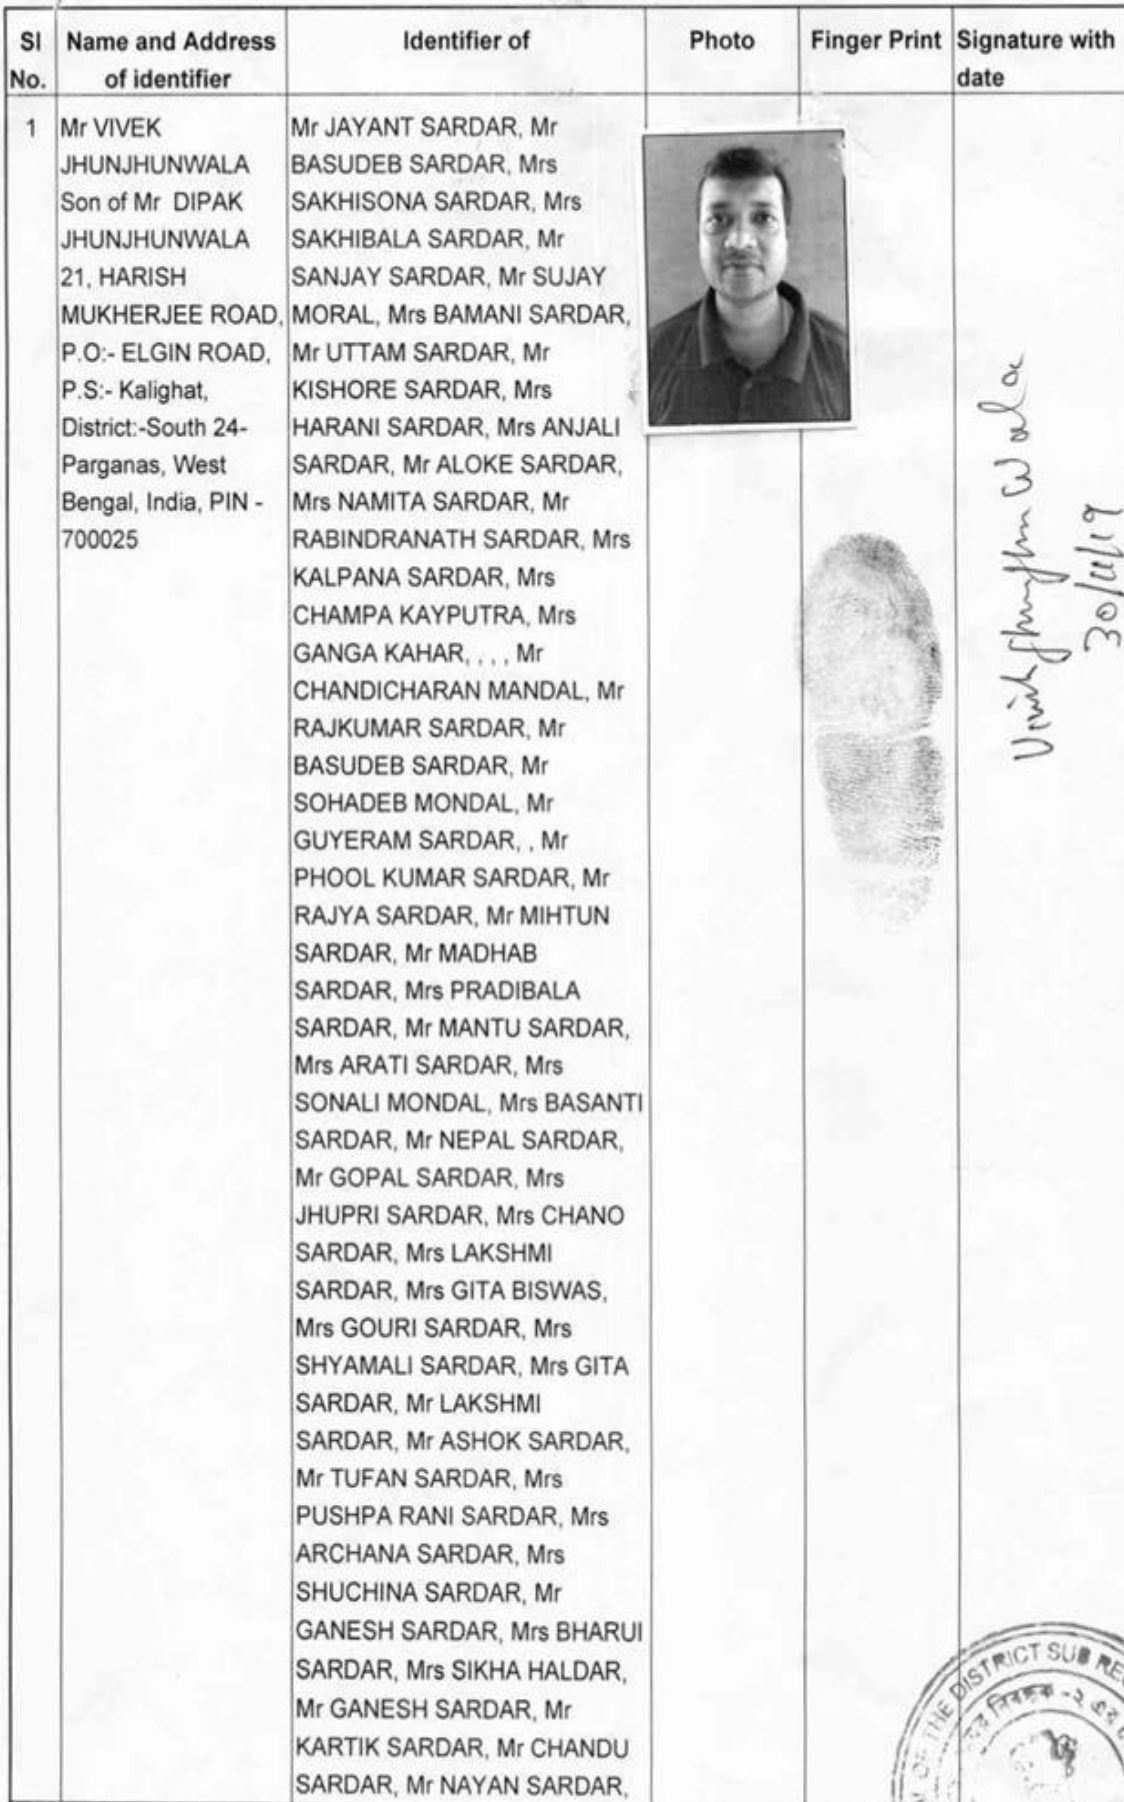 Sl No.
Name and Address of identifier
Identifier of
Photo
Finger Print
Signature with date
1
Mr VIVEK
JHUNJHUNWALA
Son of Mr DIPAK
JHUNJHUNWALA
21, HARISH
MUKHERJEE ROAD,
P.O:- ELGIN ROAD,
P.S:- Kalighat,
District:-South 24-
Parganas, West
Bengal, India, PIN -
700025
Mr JAYANT SARDAR, Mr
BASUDEB SARDAR, Mrs
SAKHISONA SARDAR, Mrs
SAKHIBALA SARDAR, Mr
SANJAY SARDAR, Mr SUJAY
MORAL, Mrs BAMANI SARDAR,
Mr UTTAM SARDAR, Mr
KISHORE SARDAR, Mrs
HARANI SARDAR, Mrs ANJALI
SARDAR, Mr ALOKE SARDAR,
Mrs NAMITA SARDAR, Mr
RABINDRANATH SARDAR, Mrs
KALPANA SARDAR, Mrs
CHAMPA KAYPUTRA, Mrs
GANGA KAHAR, , , , Mr
CHANDICHARAN MANDAL, Mr
RAJKUMAR SARDAR, Mr
BASUDEB SARDAR, Mr
SOHADEB MONDAL, Mr
GUYERAM SARDAR, , Mr
PHOOL KUMAR SARDAR, Mr
RAJYA SARDAR, Mr MIHTUN
SARDAR, Mr MADHAB
SARDAR, Mrs PRADIBALA
SARDAR, Mr MANTU SARDAR,
Mrs ARATI SARDAR, Mrs
SONALI MONDAL, Mrs BASANTI
SARDAR, Mr NEPAL SARDAR,
Mr GOPAL SARDAR, Mrs
JHUPRI SARDAR, Mrs CHANO
SARDAR, Mrs LAKSHMI
SARDAR, Mrs GITA BISWAS,
Mrs GOURI SARDAR, Mrs
SHYAMALI SARDAR, Mrs GITA
SARDAR, Mr LAKSHMI
SARDAR, Mr ASHOK SARDAR,
Mr TUFAN SARDAR, Mrs
PUSHPA RANI SARDAR, Mrs
ARCHANA SARDAR, Mrs
SHUCHINA SARDAR, Mr
GANESH SARDAR, Mrs BHARUI
SARDAR, Mrs SIKHA HALDAR,
Mr GANESH SARDAR, Mr
KARTIK SARDAR, Mr CHANDU
SARDAR, Mr NAYAN SARDAR,
30/11/19
OF THE DISTRICT SUB RE